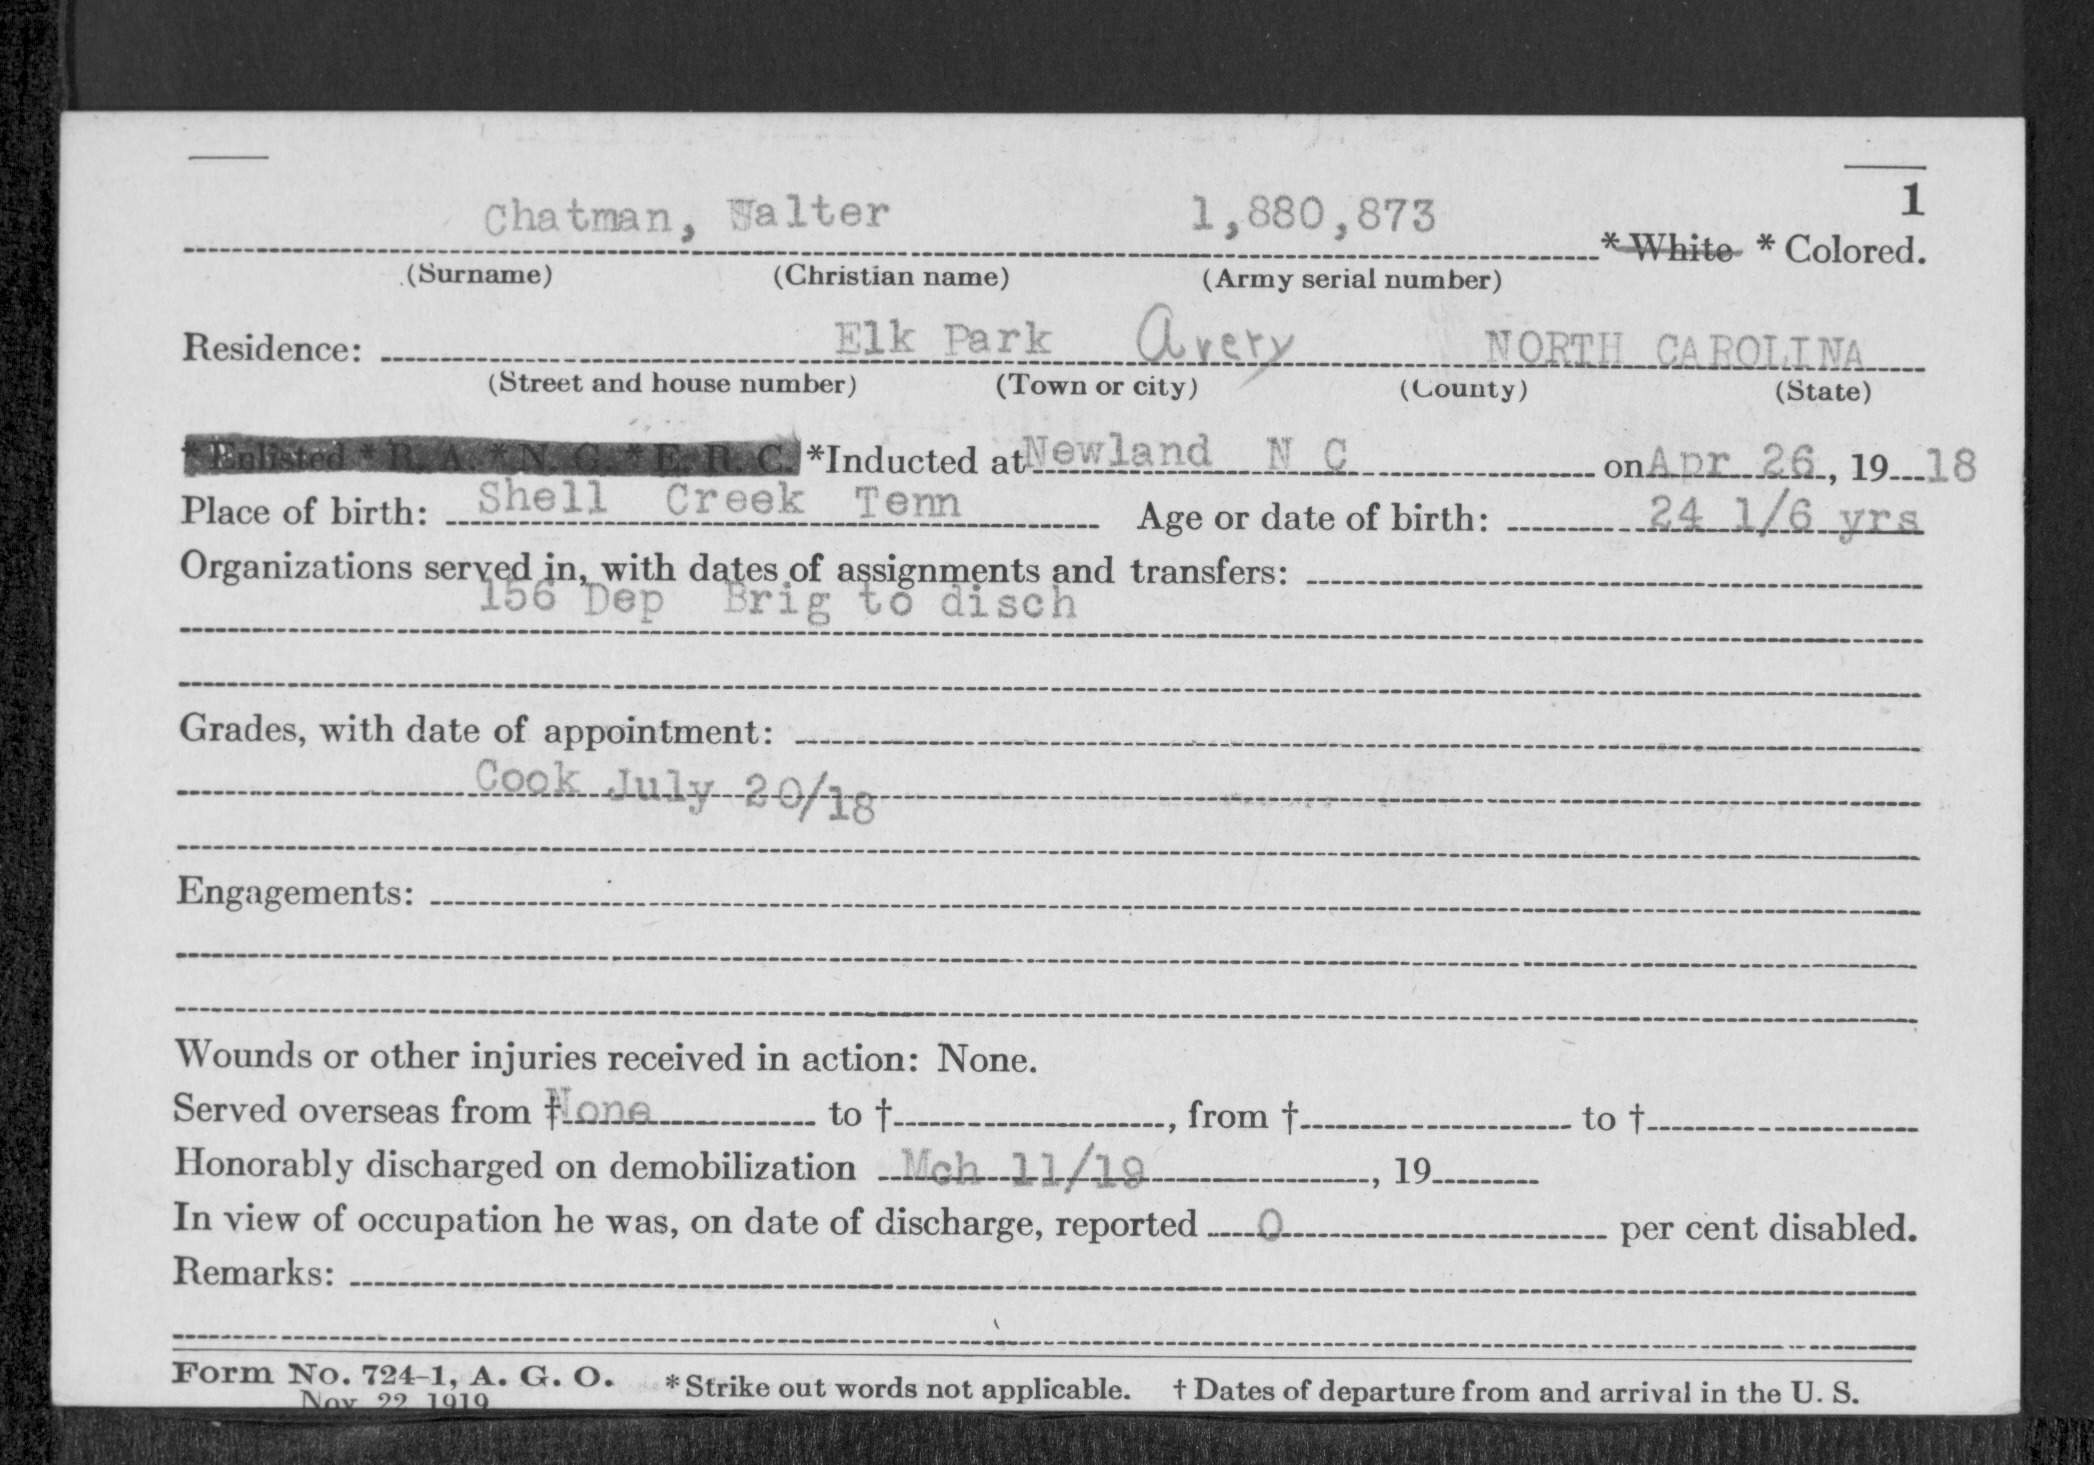 1
Chatman, Walter 1,880,873 * White * Colored.
(Surname) (Christian name) (Army serial number)
Residence: Elk Park Avery NORTH CAROLINA
(Street and house number) (Town or city) (County) (State)
* Enlisted * R. A. * N. G. * E. R. C. *Inducted at Newland N C on Apr 26, 19 18
Place of birth: Shell Creek Tenn Age or date of birth: 24 1/6 yrs
Organizations served in, with dates of assignments and transfers:
156 Dep Brig to disch
Grades, with date of appointment:
Cook July 20/18
Engagements:
Wounds or other injuries received in action: None.
Served overseas from † None to †, from † to †
Honorably discharged on demobilization Mch 11/19, 19
In view of occupation he was, on date of discharge, reported 0 per cent disabled.
Remarks:
Form No. 724-1, A. G. O. * Strike out words not applicable. † Dates of departure from and arrival in the U. S.
Nov 22 1919